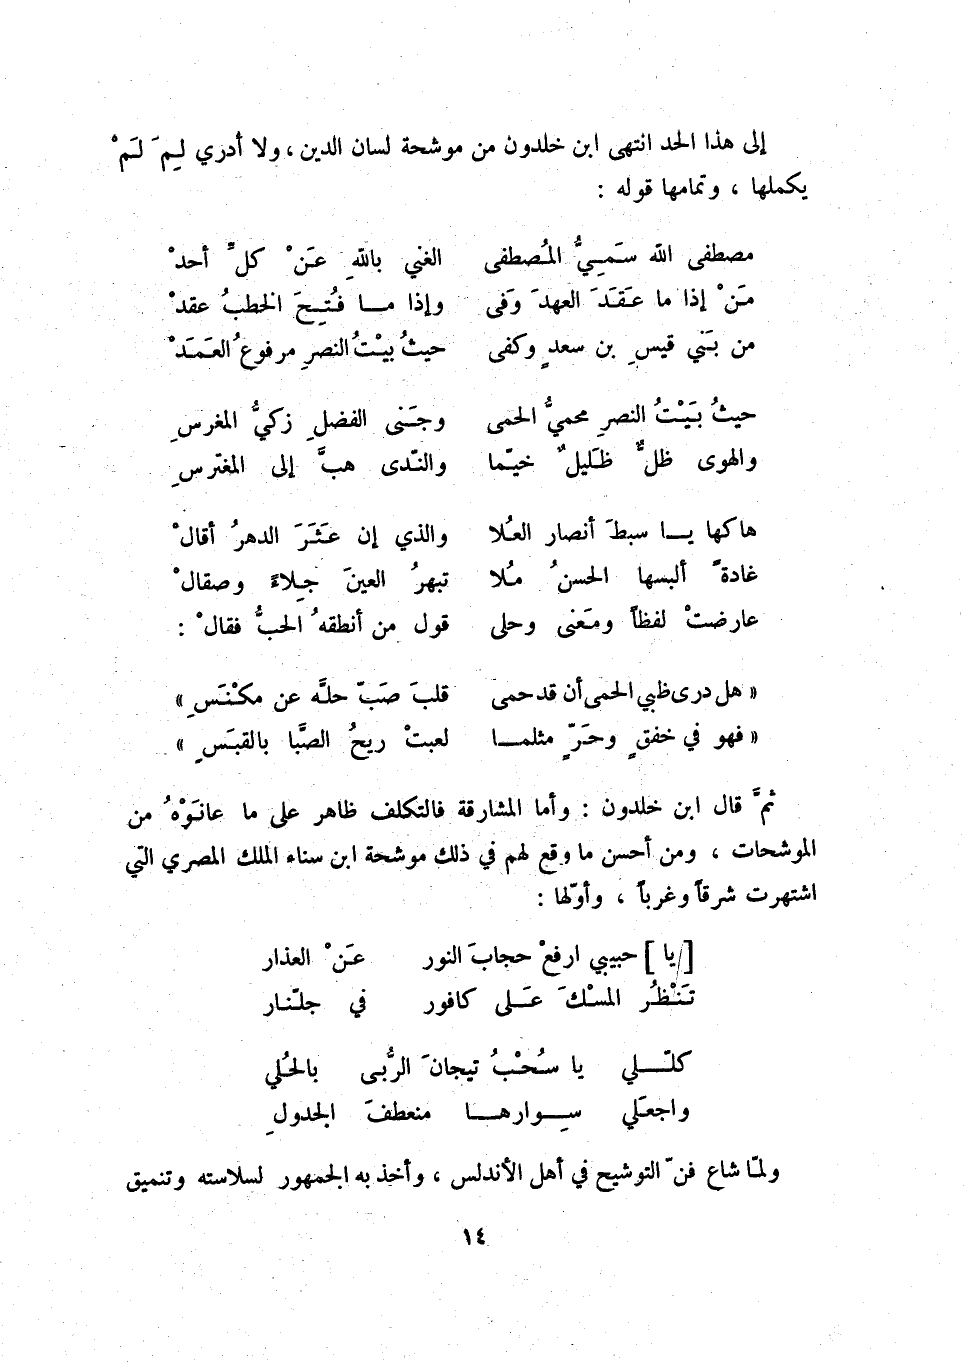 إلى هذا الحد انتهى ابن خلدون من موشحة لسان الدين ، ولا أدري لِمَ لَمْ
يكملها ، وتمامها قوله :
مصطفى الله سَمِيُّ المُصطفى الغني بالله عَنْ كلِّ أحدْ
مَنْ إذا ما عَقَدَ العهدَ وَفى وإذا ما فُتِحَ الخطبُ عقدْ
من بَني قيسِ بن سعدٍ وكفى حيثُ بيْتُ النصرِ مرفوعُ العَمَدْ
حيثُ بَيْتُ النصرِ محميُّ الحمى وجَنى الفضلِ زكيُّ المغرسِ
والهوى ظلٌّ ظَليلٌ خيّما والنّدى هبَّ إلى المغترسِ
هاكها يا سبطَ أنصار العُلا والذي إن عَثَرَ الدهرُ أقالْ
غادةً ألبسها الحسنُ مُلا تبهرُ العينَ جِلاءً وصقالْ
عارضتْ لفظاً ومَعنى وحلى قول من أنطقهُ الحبُّ فقالْ :
« هل درى ظبي الحمى أن قد حمى قلبَ صَبّ حلَّه عن مكْنَسِ »
« فهو في خفقٍ وحَرّ مثلما لعبتْ ريحُ الصَّبا بالقبَسِ »
ثمَّ قال ابن خلدون : وأما المشارقة فالتكلف ظاهر على ما عانَوْهُ من
الموشحات ، ومن أحسن ما وقع لهم في ذلك موشحة ابن سناء الملك المصري التي
اشتهرت شرقاً وغرباً ، وأوّلها :
[يا] حبيبي ارفعْ حجابَ النور عَنْ العذار
تَنْظُر المسْكَ عَلى كافور في جلّنار
كلّلي يا سُحْبُ تيجانَ الرُّبى بالحُلي
واجعَلي سِوارها منعطفَ الجدولِ
ولمّا شاع فنّ التوشيح في أهل الأندلس ، وأخذ به الجمهور لسلاسته وتنميق
١٤